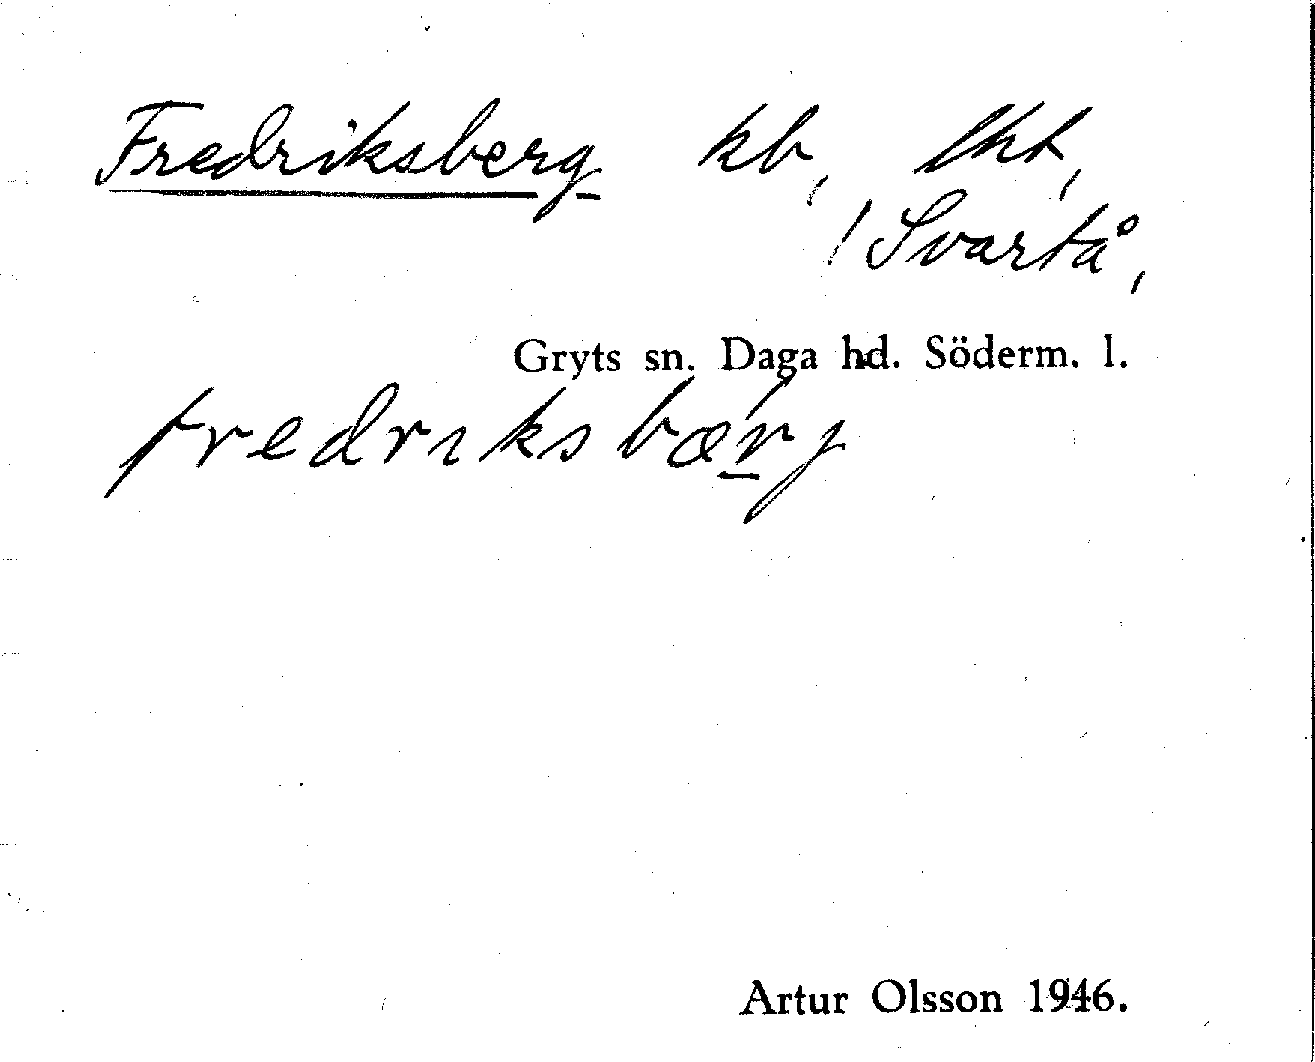 Fredriksberg kb, lht,
/ Svartå,
Gryts sn. Daga hd. Söderm. l.
fredriksbærj
Artur Olsson 1946.